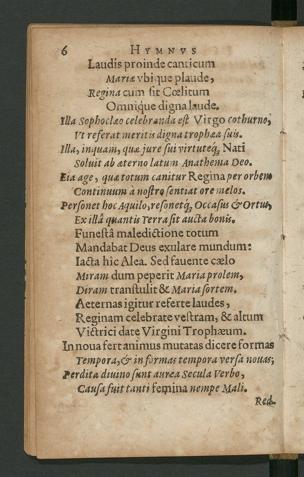 6 HYMNVS
Laudis proinde canticum
Mariæ vbique plaude,
Regina cum sit Cœlitum
Omnique digna laude.
Illa Sophocleo celebranda est Virgo cothurno,
Vt referat meritis digna trophæa suis.
Illa, inquam, quæ jure sui virtuteq́; Nati
Soluit ab æterno latum Anathema Deo.
Eia age, qua totum canitur Regina per orbem
Continuum à nostro sentiat ore melos.
Personet hoc Aquilo, resonetq́; Occasus & Ortus,
Ex illâ quantis Terra sit aucta bonis.
Funestâ maledictione totum
Mandabat Deus exulare mundum:
Iacta hic Alea. Sed fauente cælo
Miram dum peperit Maria prolem,
Diram transtulit & Maria sortem.
Aeternas igitur referte laudes,
Reginam celebrate vestram, & altum
Victrici date Virgini Trophæum.
In noua fert animus mutatas dicere formas
Tempora, & in formas tempora versa nouas;
Perdita diuino sunt aurea Secula Verbo,
Causa fuit tanti femina nempe Mali.
Red-